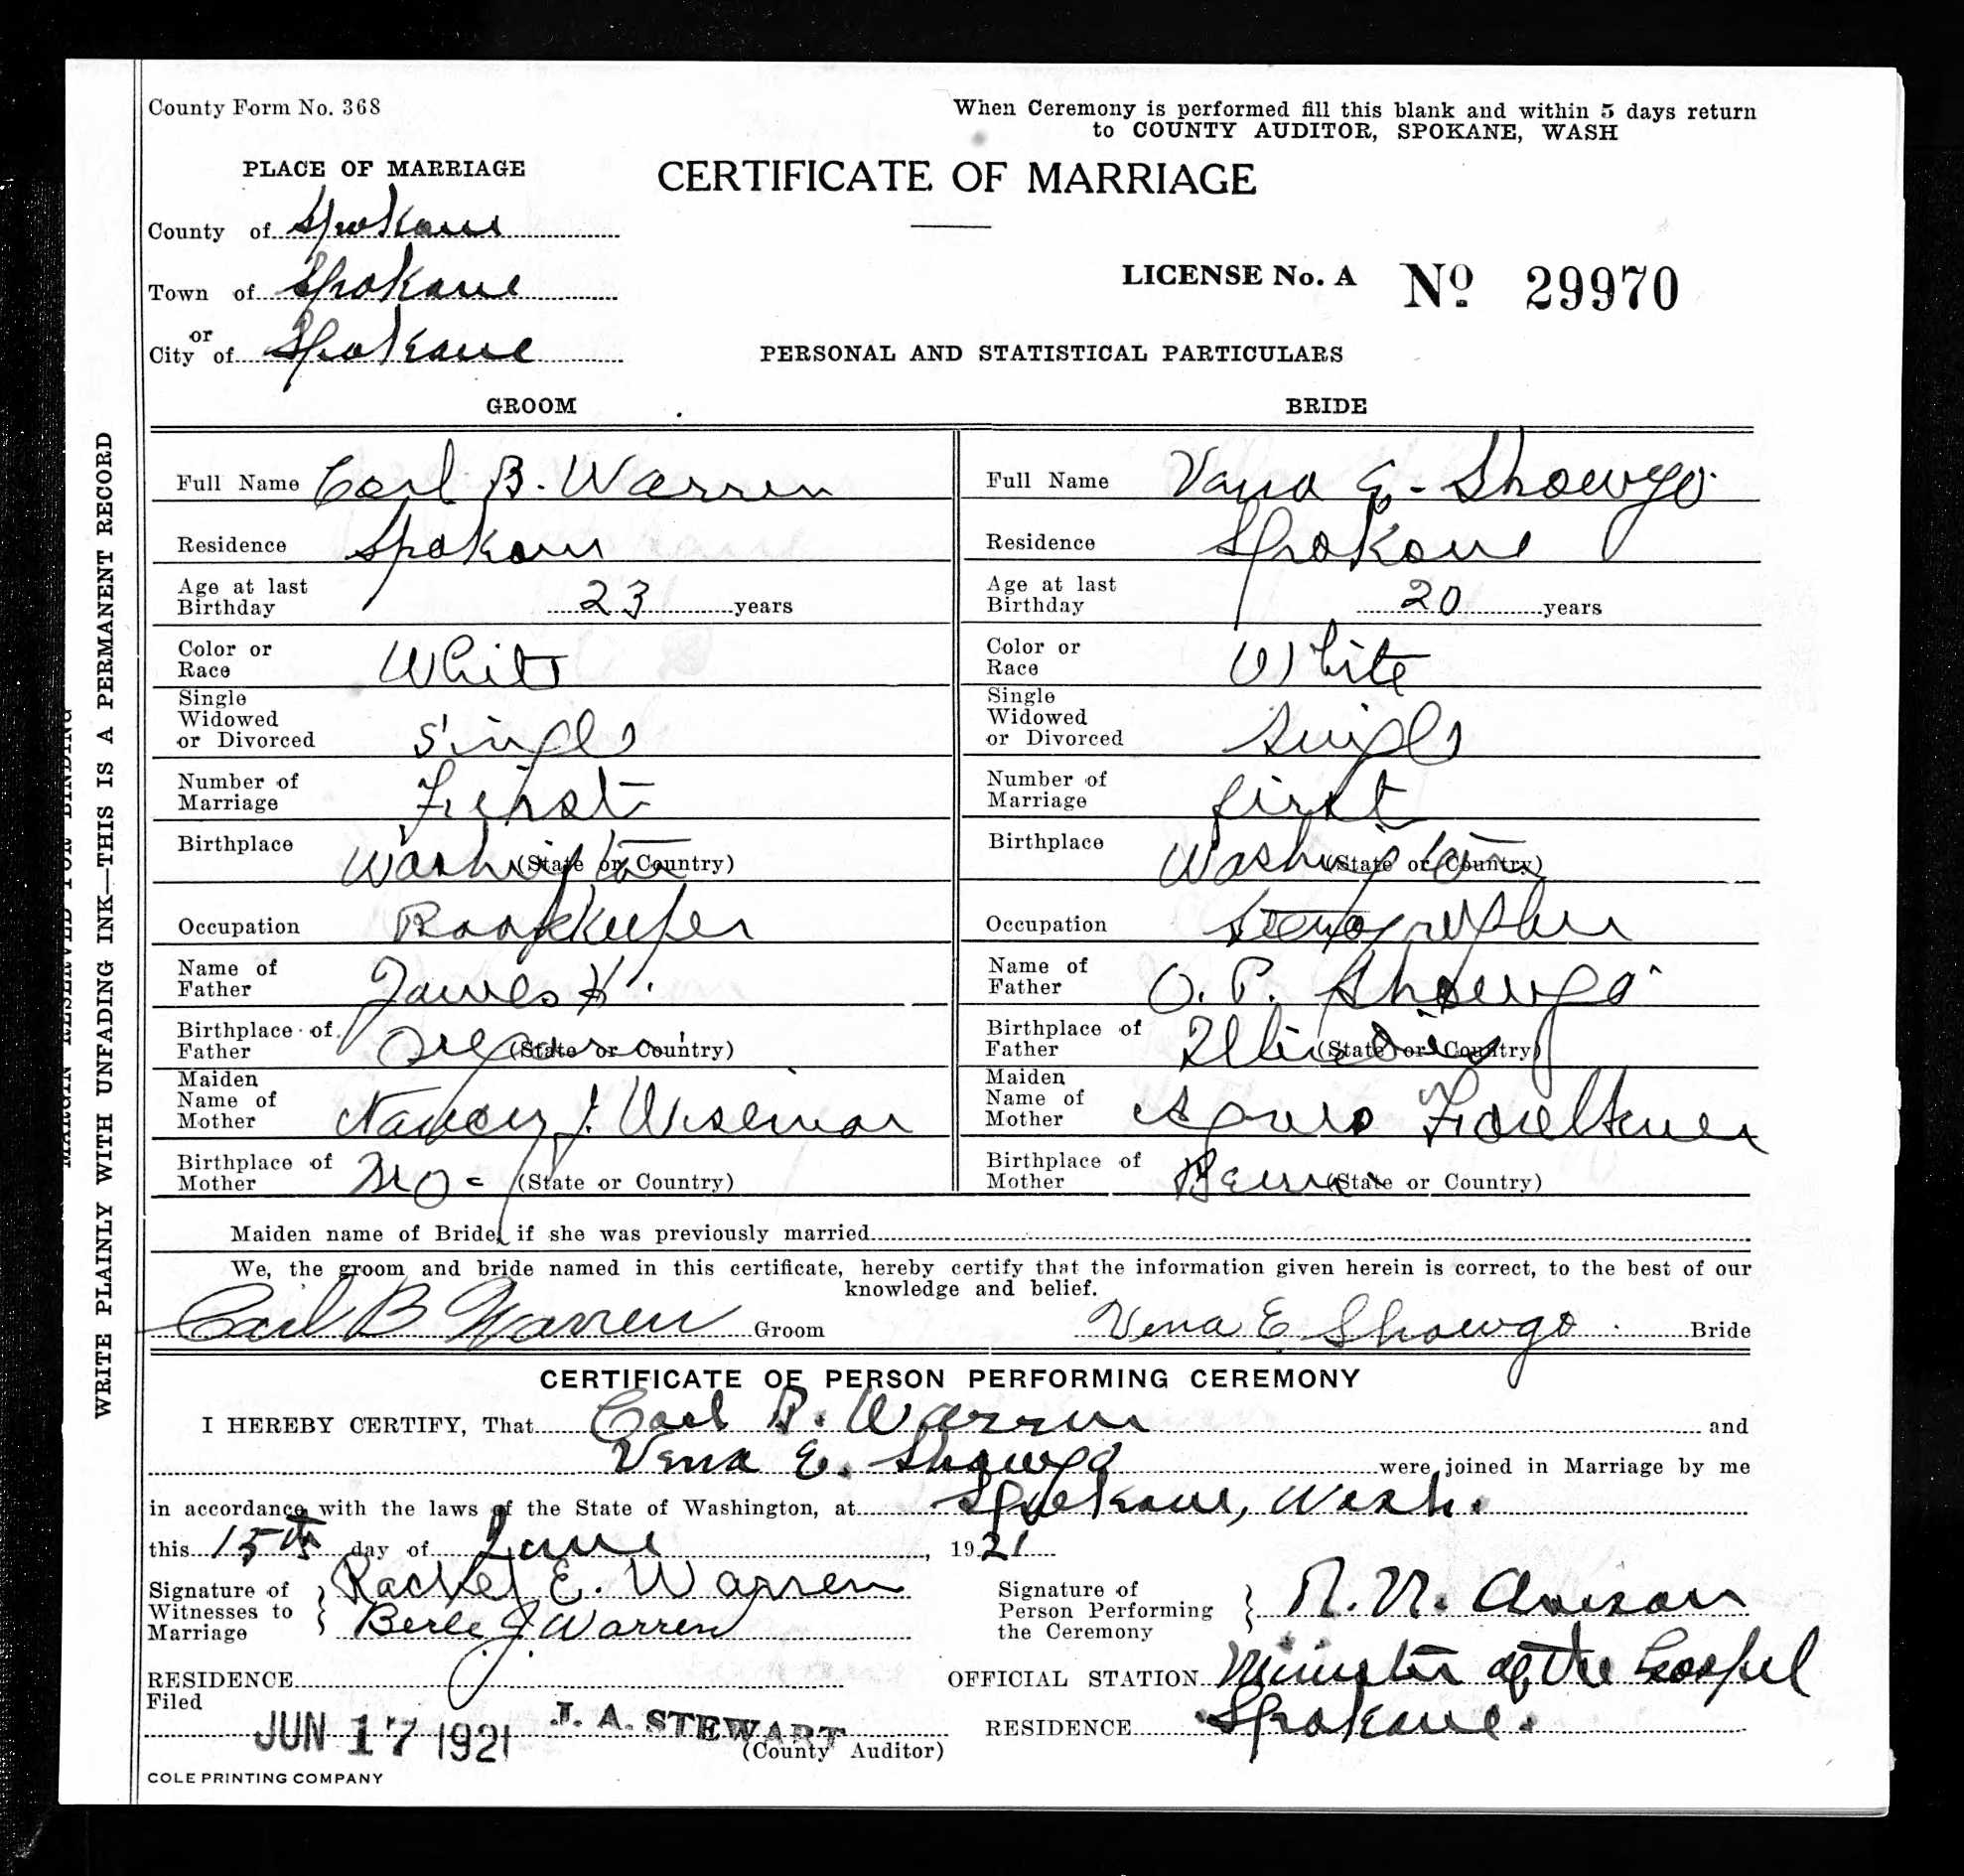 County Form No. 368
When Ceremony is performed fill this blank and within 5 days return
to COUNTY AUDITOR, SPOKANE, WASH
PLACE OF MARRIAGE
CERTIFICATE OF MARRIAGE
County of Spokane
Town of Spokane
or
City of Spokane
LICENSE No. A No 29970
PERSONAL AND STATISTICAL PARTICULARS
GROOM
Full Name Carl B. Warren
Residence Spokane
Age at last
Birthday 23 years
Color or
Race White
Single
Widowed
or Divorced Single
Number of
Marriage First
Birthplace Washington (State or Country)
Occupation Bookkeeper
Name of
Father James H.
Birthplace of
Father Oregon (State or Country)
Maiden
Name of
Mother Nancy J. Wiseman
Birthplace of
Mother Mo- (State or Country)
BRIDE
Full Name E. Showgo
Residence Spokane
Age at last
Birthday 20 years
Color or
Race White
Single
Widowed
or Divorced Single
Number of
Marriage first
Birthplace Washington (State or Country)
Occupation Stenographer
Name of
Father O. P. Showgo
Birthplace of
Father Illinois (State or Country)
Maiden
Name of
Mother
Birthplace of
Mother (State or Country)
Maiden name of Bride, if she was previously married
We, the groom and bride named in this certificate, hereby certify that the information given herein is correct, to the best of our
knowledge and belief.
Carl B Warren Groom
Vena E Showgo Bride
CERTIFICATE OF PERSON PERFORMING CEREMONY
I HEREBY CERTIFY, That Carl B. Warren and
Vena E. Showgo were joined in Marriage by me
in accordance with the laws of the State of Washington, at Spokane, Wash.
this 15th day of June, 1921
Signature of
Witnesses to
Marriage
Rachel E. Warren
Berle J. Warren
Signature of
Person Performing
the Ceremony
RESIDENCE
OFFICIAL STATION Minister of the Gospel
Filed
JUN 17 1921 J. A. STEWART
(County Auditor)
RESIDENCE Spokane.
COLE PRINTING COMPANY
WRITE PLAINLY WITH UNFADING INK—THIS IS A PERMANENT RECORD